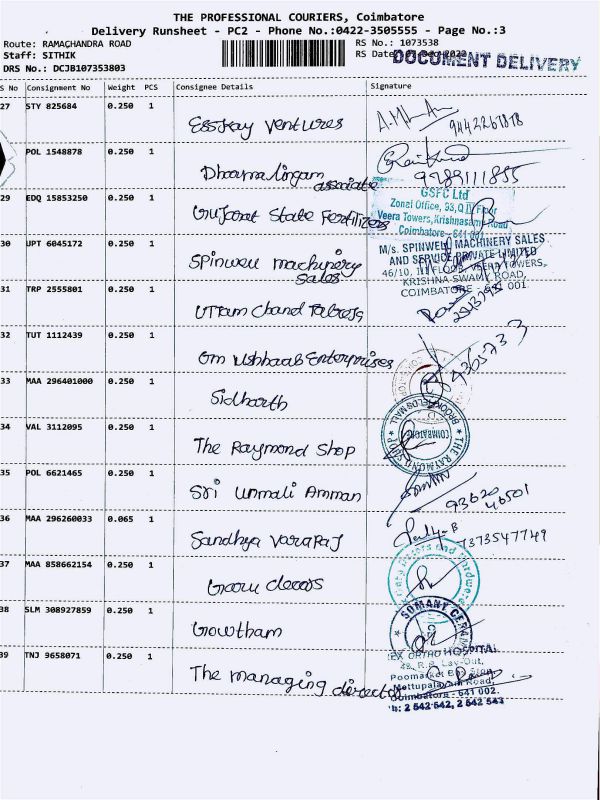 THE PROFESSIONAL COURIERS, Coimbatore
Delivery Runsheet - PC2 - Phone No.:0422-3505555 - Page No.:3
Route: RAMACHANDRA ROAD
RS No.: 1073538
Staff: SITHIK
RS Date:
DOCUMENT DELIVERY
DRS No.: DCJB107353803
S No Consignment No Weight PCS Consignee Details Signature
27 STY 825684 0.250 1 Esskay Ventures
9442261818
POL 1548878 0.250 1 Dharmalingam associate
9789111855
29 EDQ 15853250 0.250 1 Gujarat State Fertilizers
GSFC Ltd
Zonal Office, 93,Q III Floor
Veera Towers, Krishnasamy Road
Coimbatore - 641 001
30 UPT 6045172 0.250 1 Spinwell machinery
Sales
M/s. SPINWELL MACHINERY SALES
AND SERVICE PRIVATE LIMITED
46/10, III FLOOR, VEERA TOWERS,
KRISHNA SWAMY ROAD,
COIMBATORE - 641 001.
31 TRP 2555801 0.250 1 Uttam Chand
32 TUT 1112439 0.250 1 Om Enterprises
33 MAA 296401000 0.250 1 Sidharth
34 VAL 3112095 0.250 1 The Raymond Shop
THE RAYMOND SHOP
BROOKFIELDS MALL
COIMBATORE
35 POL 6621465 0.250 1 Sri Unmali Amman
93620
46501
36 MAA 296260033 0.065 1 Sandhya Vararaj
7373547749
37 MAA 858662154 0.250 1 Gooru decors
38 SLM 308927859 0.250 1 Gowtham
SOMANY CERAM
39 TNJ 9658071 0.250 1 The managing director
ORTHO HOSPITAL
48, R.G. Lay-Out,
Poomarket
Mettupalayam Road,
Coimbatore - 641 002.
Ph: 2 542 542, 2 542 543